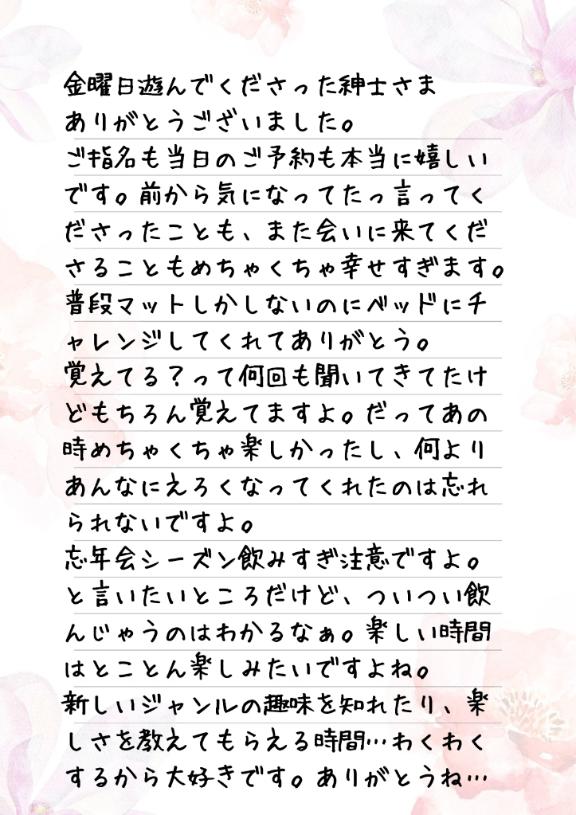 金曜日遊んでくださった紳士さま
ありがとうございました。
ご指名も当日のご予約も本当に嬉しい
です。前から気になってたっ言ってく
ださったことも、また会いに来てくだ
さることもめちゃくちゃ幸せすぎます。
普段マットしかしないのにベッドにチ
ャレンジしてくれてありがとう。
覚えてる？って何回も聞いてきてたけ
どもちろん覚えてますよ。だってあの
時めちゃくちゃ楽しかったし、何より
あんなにえろくなってくれたのは忘れ
られないですよ。
忘年会シーズン飲みすぎ注意ですよ。
と言いたいところだけど、ついつい飲
んじゃうのはわかるなぁ。楽しい時間
はとことん楽しみたいですよね。
新しいジャンルの趣味を知れたり、楽
しさを教えてもらえる時間…わくわく
するから大好きです。ありがとうね…